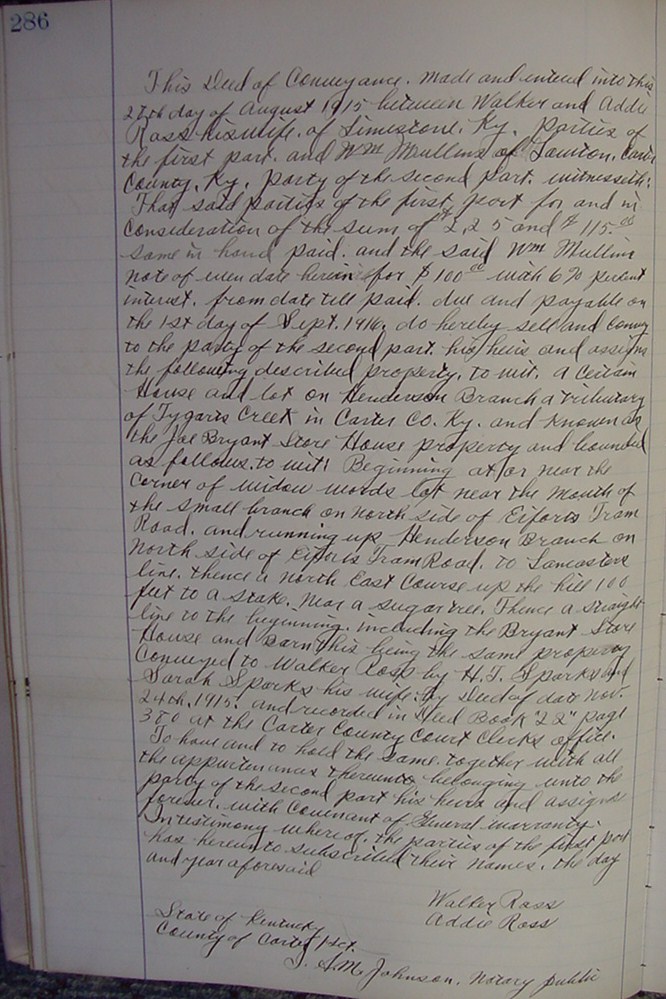 286
This Deed of Conveyance. Made and entered into this
27th day of August 1915 between Walker and Addie
Ross his wife. of Limestone. Ky. Parties of
the first part. and Wm Mullins of Lawton. Carter
County. Ky. party of the second part. witnesseth:
That said parties of the first part for and in
Consideration of the sum of $225 and $115.00
same in hand paid. and the said Wm Mullins
note of even date herein for $100.00 with 6% percent
interest. from date till paid. due and payable on
the 1st day of Sept. 1916. do hereby sell and convey
to the party of the second part. his heirs and assigns
the following described property. to wit. a certain
House and lot on Henderson Branch a tributary
of Tygarts Creek in Carter Co. Ky. and known as
the Joe Bryant Store House property and bounded
as follows. to wit: Beginning at or near the
corner of widow words lot near the Mouth of
the small branch on north side of Eiforts Tram
Road. and running up Henderson Branch on
North side of Eiforts Tram Road. to Lancasters
line. thence a North East Course up the hill 100
feet to a stake. Near a sugar tree. Thence a straight
line to the beginning. including the Bryant Store
House and Barn this being the same property
Conveyed to Walker Ross by H. T. Sparks and
Sarah Sparks his wife. By Deed of date Nov.
24th. 1915. and recorded in Deed Book "22" page
380 at the Carter County Court Clerks office.
To have and to hold the same. together with all
the appurtenances thereunto belonging unto the
party of the second part his heirs and assigns
forever. with Covenant of General warranty.
In testimony where of. the parties of the first part
has hereunto subscribed their names. the day
and year aforesaid
Walker Ross
Addie Ross
State of Kentucky
County of Carter Sct.
M Johnson. Notary public